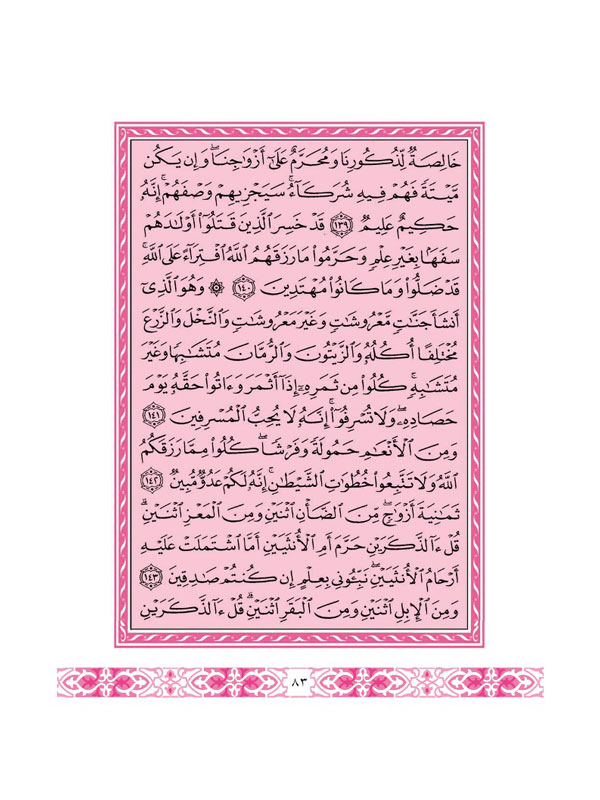 خَالِصَةٌ لِّذُكُورِنَا وَمُحَرَّمٌ عَلَىٰٓ أَزْوَٰجِنَاۖ وَإِن يَكُن
مَّيْتَةً فَهُمْ فِيهِ شُرَكَآءُۚ سَيَجْزِيهِمْ وَصْفَهُمْۚ إِنَّهُۥ
حَكِيمٌ عَلِيمٌ ١٣٩ قَدْ خَسِرَ ٱلَّذِينَ قَتَلُوٓا۟ أَوْلَٰدَهُمْ
سَفَهًۢا بِغَيْرِ عِلْمٍ وَحَرَّمُوا۟ مَا رَزَقَهُمُ ٱللَّهُ ٱفْتِرَآءً عَلَى ٱللَّهِۚ
قَدْ ضَلُّوا۟ وَمَا كَانُوا۟ مُهْتَدِينَ ١٤٠ ۞ وَهُوَ ٱلَّذِىٓ
أَنشَأَ جَنَّٰتٍ مَّعْرُوشَٰتٍ وَغَيْرَ مَعْرُوشَٰتٍ وَٱلنَّخْلَ وَٱلزَّرْعَ
مُخْتَلِفًا أُكُلُهُۥ وَٱلزَّيْتُونَ وَٱلرُّمَّانَ مُتَشَٰبِهًا وَغَيْرَ
مُتَشَٰبِهٍۚ كُلُوا۟ مِن ثَمَرِهِۦٓ إِذَآ أَثْمَرَ وَءَاتُوا۟ حَقَّهُۥ يَوْمَ
حَصَادِهِۦۖ وَلَا تُسْرِفُوٓا۟ۚ إِنَّهُۥ لَا يُحِبُّ ٱلْمُسْرِفِينَ ١٤١
وَمِنَ ٱلْأَنْعَٰمِ حَمُولَةً وَفَرْشًاۚ كُلُوا۟ مِمَّا رَزَقَكُمُ
ٱللَّهُ وَلَا تَتَّبِعُوا۟ خُطُوَٰتِ ٱلشَّيْطَٰنِۚ إِنَّهُۥ لَكُمْ عَدُوٌّ مُّبِينٌ ١٤٢
ثَمَٰنِيَةَ أَزْوَٰجٍۖ مِّنَ ٱلضَّأْنِ ٱثْنَيْنِ وَمِنَ ٱلْمَعْزِ ٱثْنَيْنِۗ
قُلْ ءَآلذَّكَرَيْنِ حَرَّمَ أَمِ ٱلْأُنثَيَيْنِ أَمَّا ٱشْتَمَلَتْ عَلَيْهِ
أَرْحَامُ ٱلْأُنثَيَيْنِۖ نَبِّـُٔونِى بِعِلْمٍ إِن كُنتُمْ صَٰدِقِينَ ١٤٣
وَمِنَ ٱلْإِبِلِ ٱثْنَيْنِ وَمِنَ ٱلْبَقَرِ ٱثْنَيْنِۗ قُلْ ءَآلذَّكَرَيْنِ
٨٣